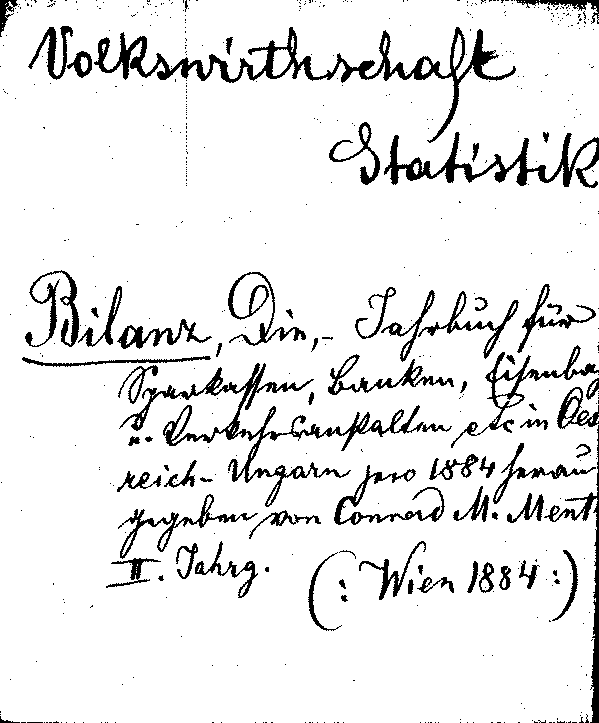 Volkswirthschaft
Statistik
Bilanz, Die,- Jahrbuch für
Sparkassen, Banken, Eisenba
u. Verkehrsanstalten etc in Oes
reich-Ungarn pero 1884 herau
gegeben von Conrad M. Ment
II. Jahrg. (: Wien 1884 :)